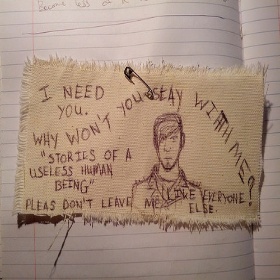 become less of
I NEED
YOU.
WHY WON'T YOU STAY WITH ME?
"STORIES OF A
USELESS HUMAN
BEING"
PLEAS DON'T LEAVE ME LIKE EVERYONE
ELSE.